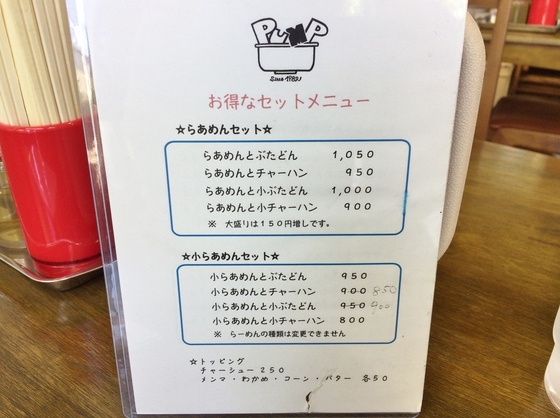 PUMP
お得なセットメニュー
☆らあめんセット☆
らあめんとぶたどん 1,050
らあめんとチャーハン 950
らあめんと小ぶたどん 1,000
らあめんと小チャーハン 900
※ 大盛りは150円増しです。
☆小らあめんセット☆
小らあめんとぶたどん 950
小らあめんとチャーハン 900 850
小らあめんと小ぶたどん 950 900
小らあめんと小チャーハン 800
※ らーめんの種類は変更できません
☆トッピング
チャーシュー 250
メンマ・わかめ・コーン・バター 各50